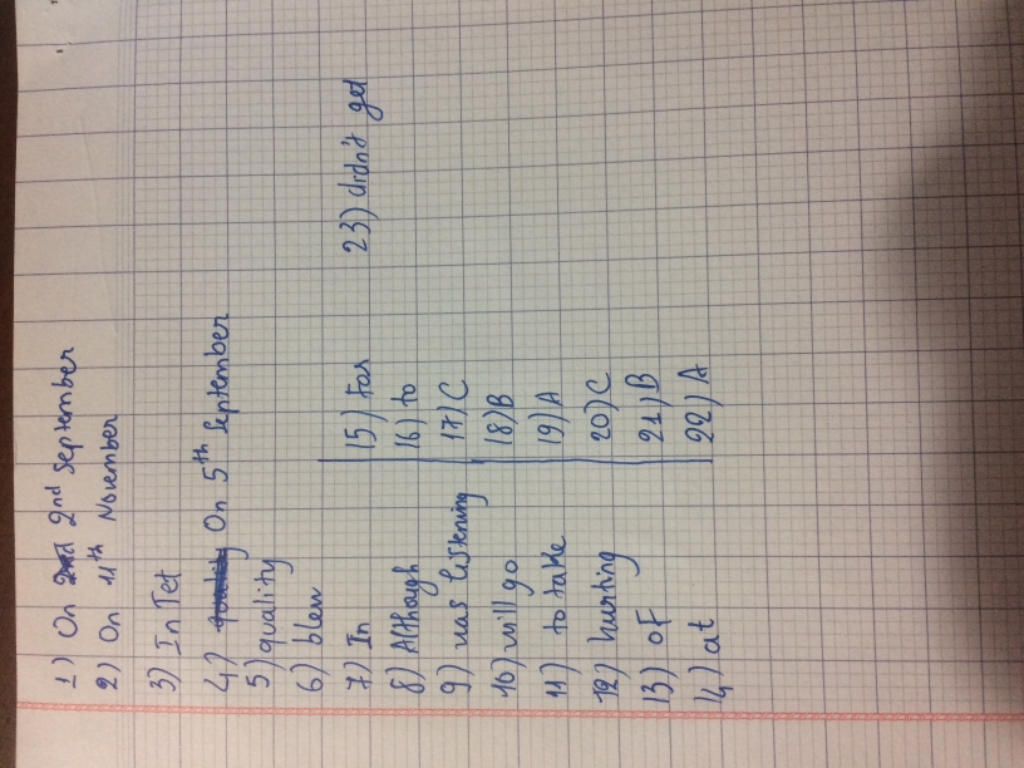 1) On 2nd September
2) On 11th November
3) In Tet
4) On 5th September
5) quality
6) blew
7) In
8) Although
9) was listening
10) will go
11) to take
12) hurting
13) of
14) at
15) For
16) to
17) C
18) B
19) A
20) C
21) B
22) A
23) didn't get